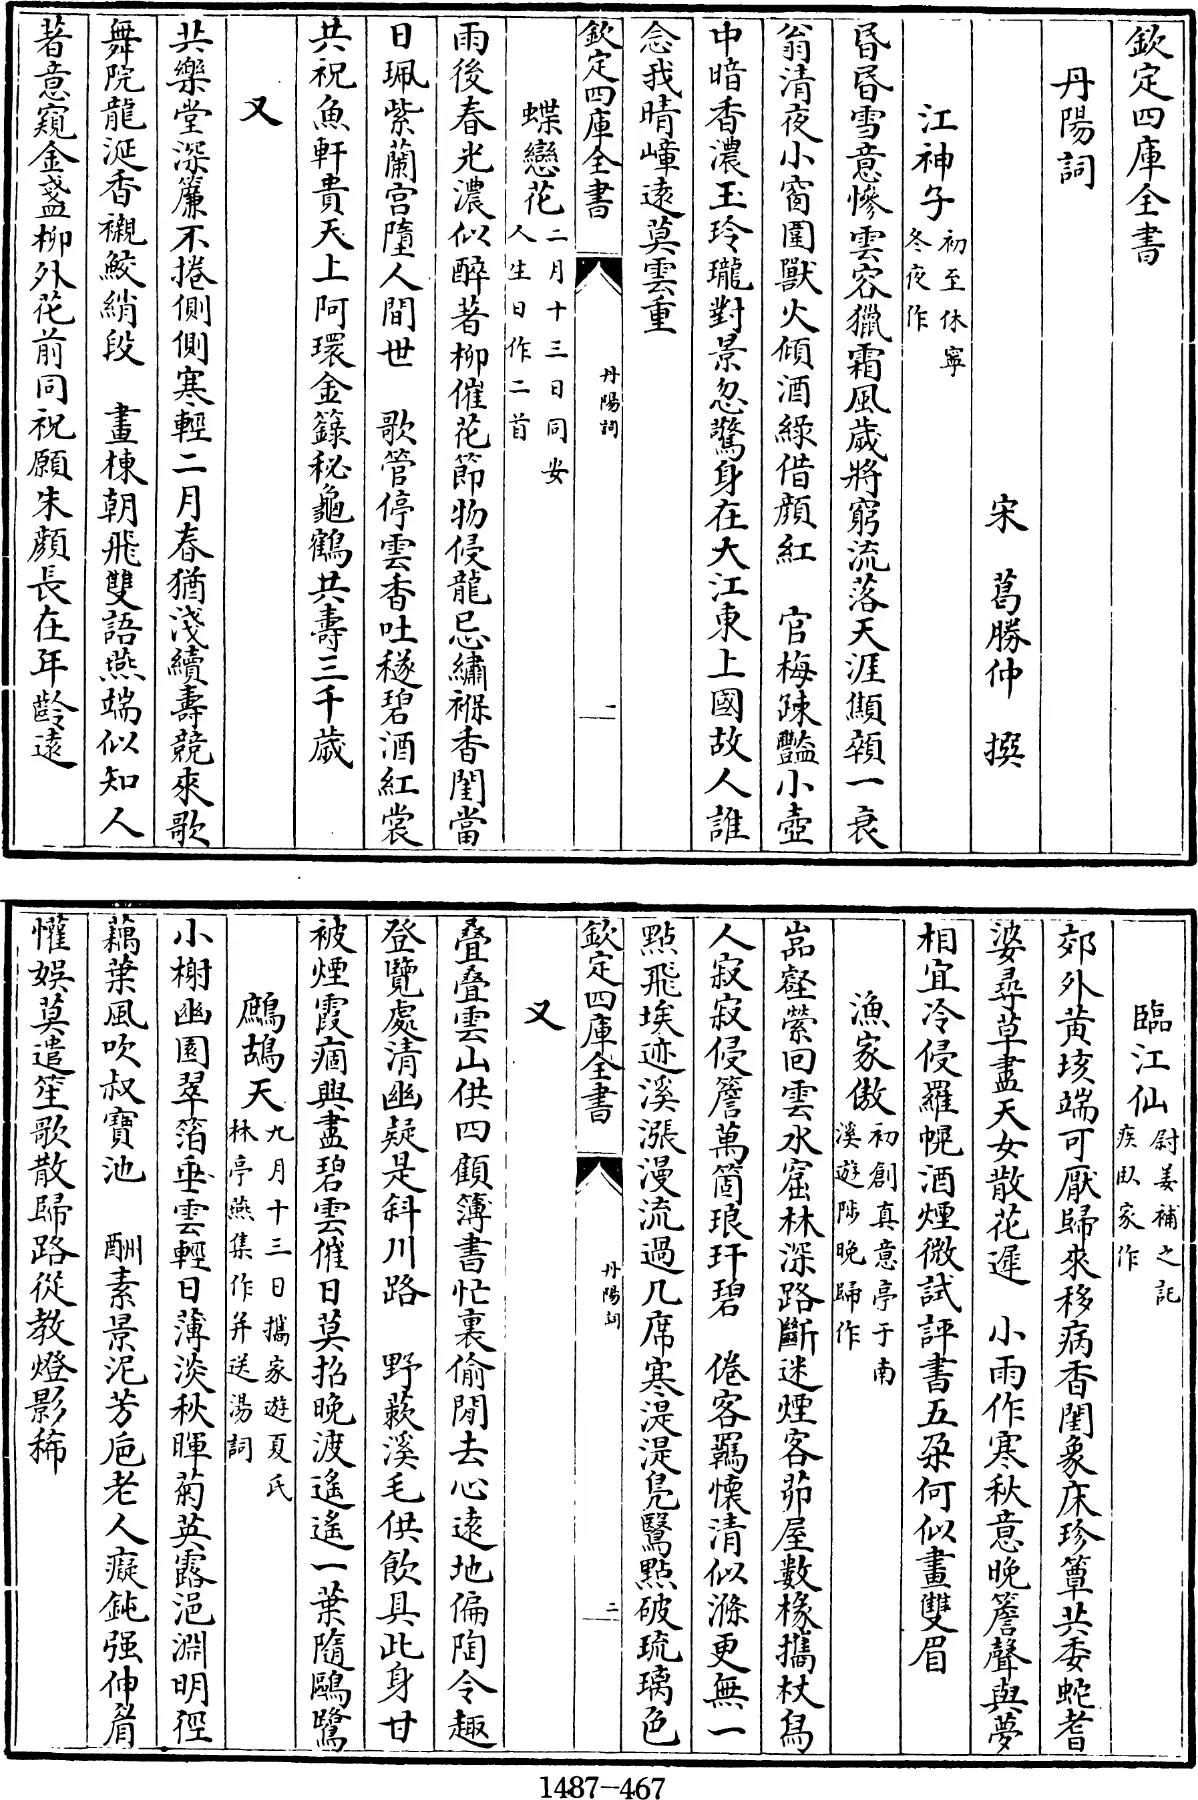 欽定四庫全書
丹陽詞
宋　葛勝仲　撰
江神子初至休寧冬夜作
昏昏雪意慘雲容獵霜風歲將窮流落天涯顦顇一衰
翁清夜小窗圍獸火傾酒綠借顔紅　官梅踈豔小壺
中暗香濃玉玲瓏對景忽驚身在大江東上國故人誰
念我晴嶂逺莫雲重
欽定四庫全書
丹陽詞
一
蝶戀花二月十三日同安人生日作二首
雨後春光濃似醉著柳催花節物侵龍忌繡褓香閨當
日珮紫蘭宫墮人間世　歌管停雲香吐穟碧酒紅裳
共祝魚軒貴天上阿環金籙秘龜鶴共壽三千歲
又
共樂堂深簾不捲側側寒輕二月春猶淺續壽競來歌
舞院龍涎香襯鮫綃段　畫棟朝飛雙語燕端似知人
著意窺金盞柳外花前同祝願朱顔長在年齡逺
臨江仙尉姜補之託疾臥家作
郊外黄垓端可厭歸來移病香閨象床珍簟共委蛇耆
婆尋草盡天女散花遲　小雨作寒秋意晚簷聲與夢
相宜冷侵羅幌酒煙微試評書五朶何似畫雙眉
漁家傲初創真意亭于南溪遊陟晚歸作
嵓壑縈回雲水窟林深路斷迷煙客茆屋數椽攜杖舄
人寂寂侵簷萬箇琅玕碧　倦客羈懐清似滌更無一
點飛埃迹溪漲漫流過几席寒湜湜鳬鷖點破琉璃色
欽定四庫全書
丹陽詞
二
又
疊疊雲山供四顧簿書忙裏偷閒去心逺地偏陶令趣
登覽處清幽疑是斜川路　野蔌溪毛供飲具此身甘
被煙霞痼興盡碧雲催日莫招晚渡遙遙一葉隨鷗鷺
鷓鴣天九月十三日攜家遊夏氏林亭燕集作并送湯詞
小榭幽園翠箔垂雲輕日薄淡秋暉菊英露浥淵明徑
藕葉風吹叔寶池　酬素景泥芳巵老人癡鈍强伸眉
懽娯莫遣笙歌散歸路從教燈影稀
1487-467